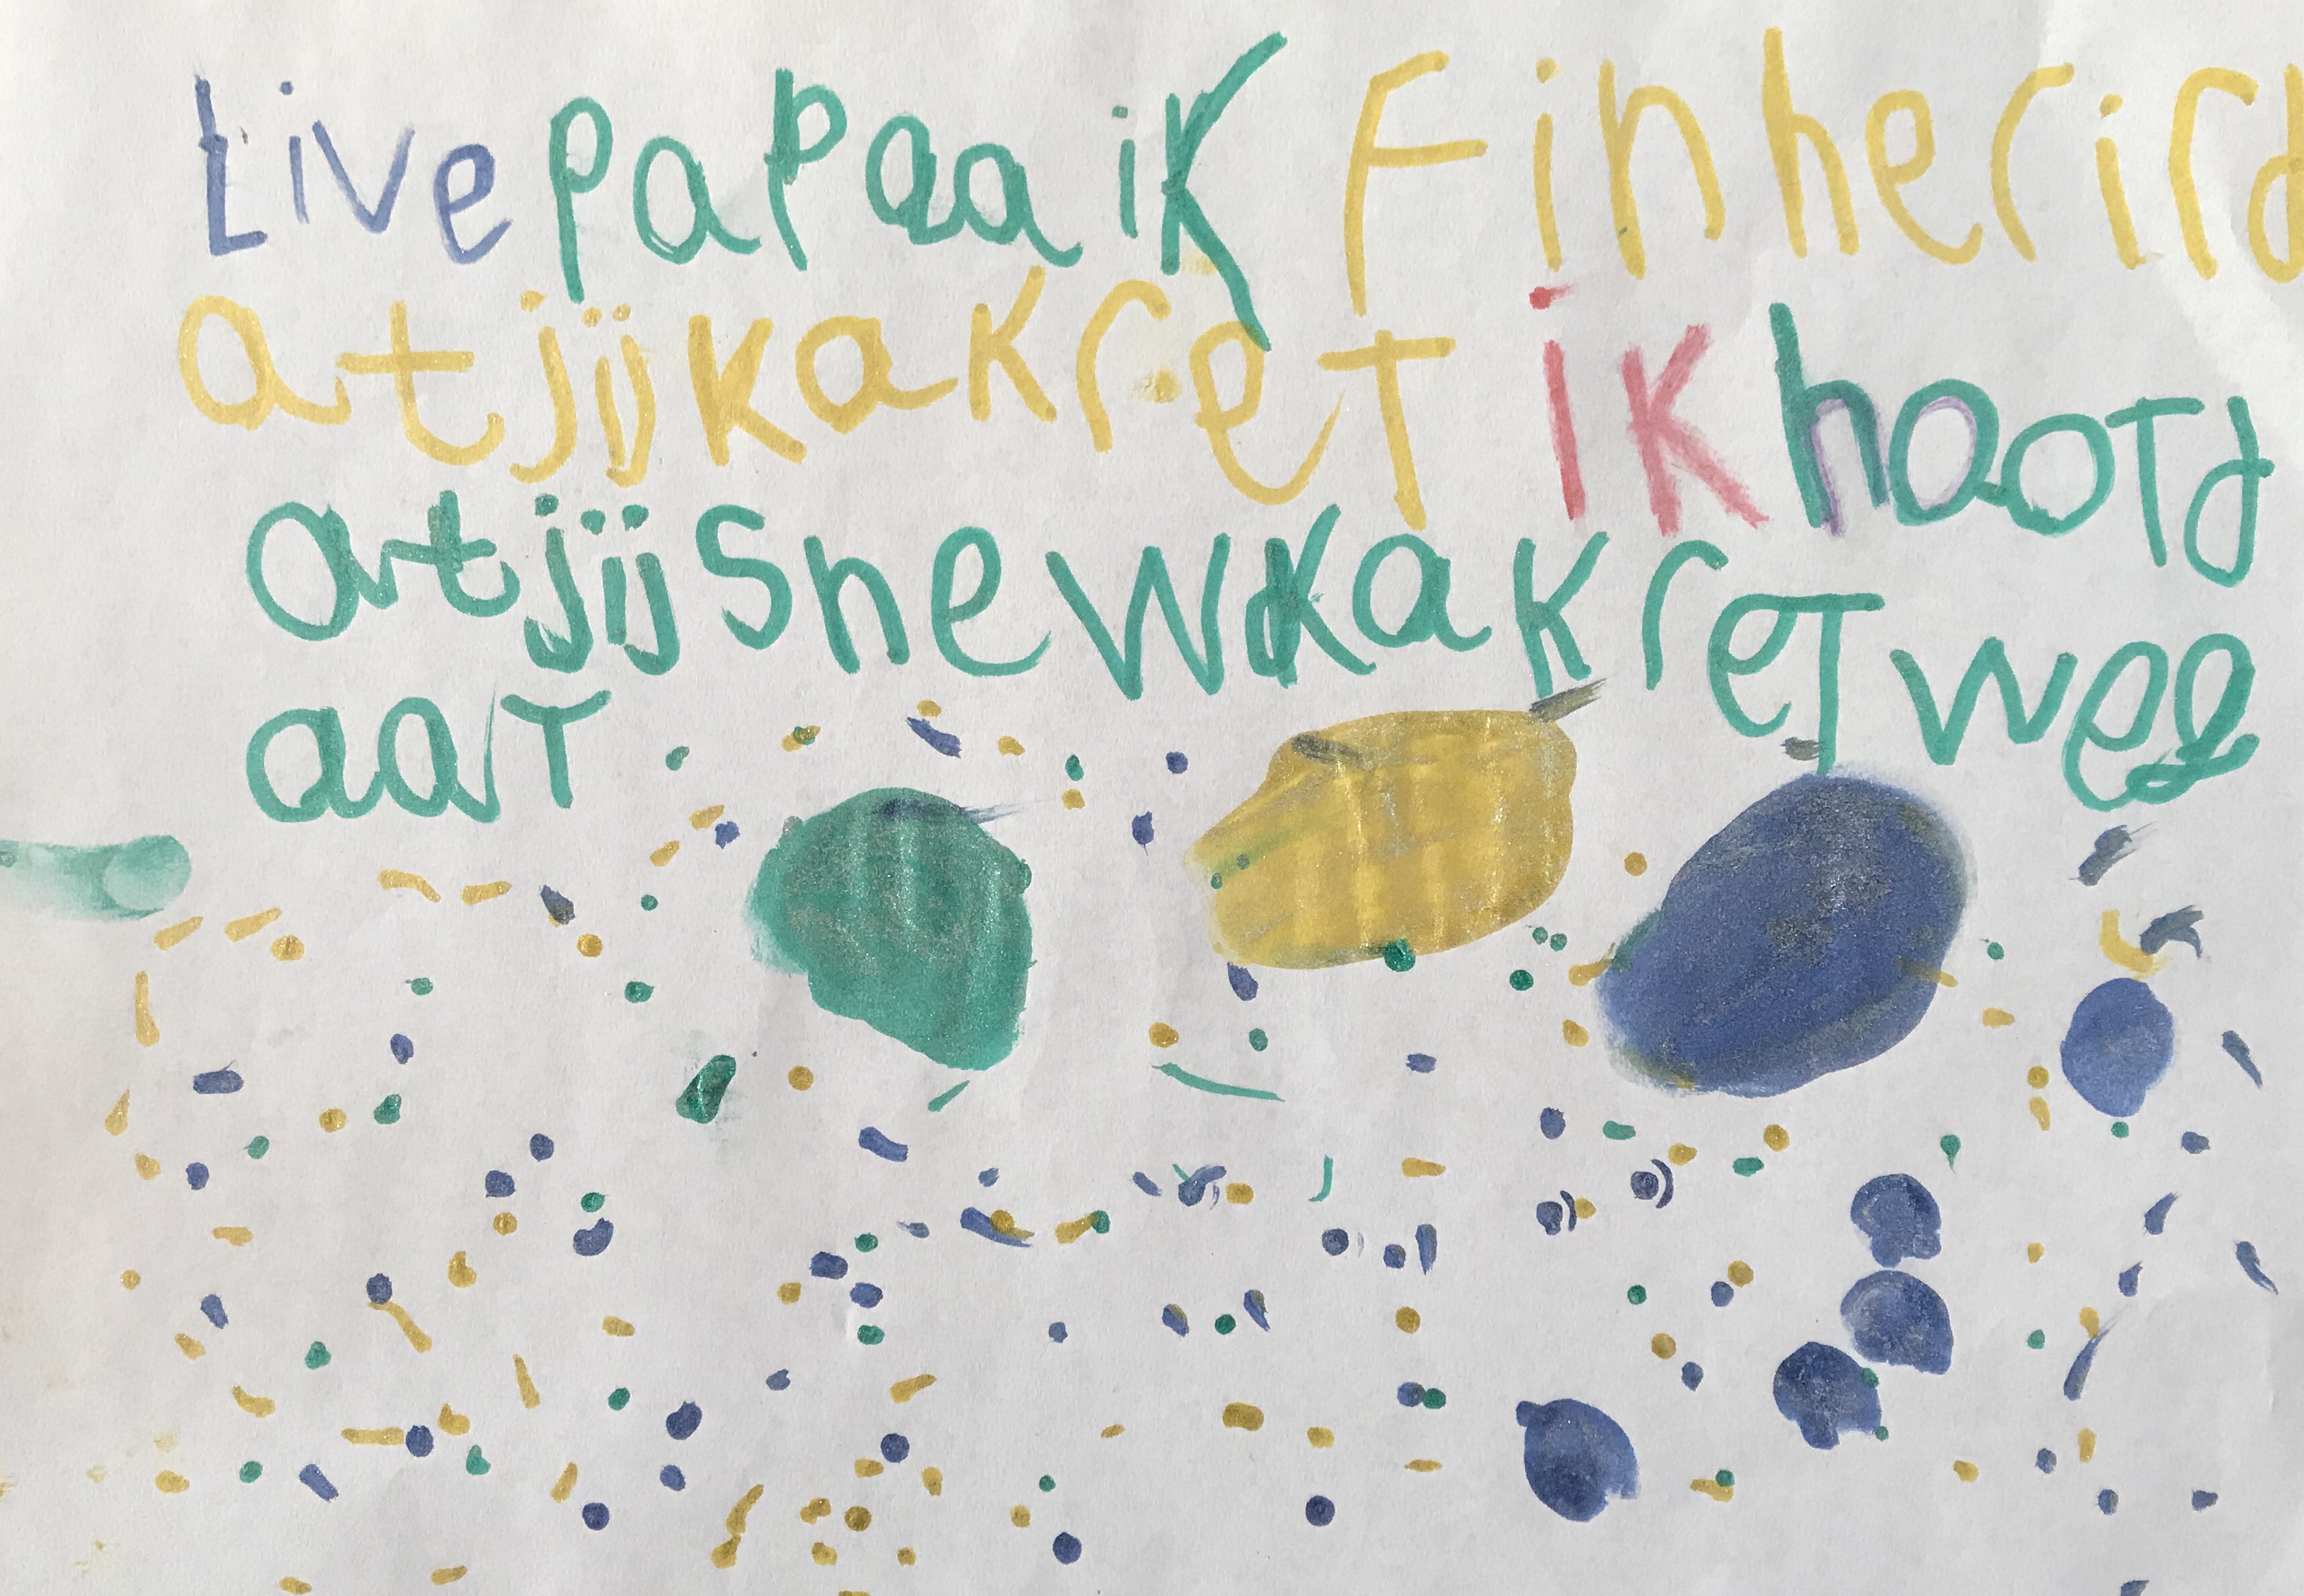 Live papaa ik Finherird
atjijkakret ik hootd
atjij snew kakret wee
aat